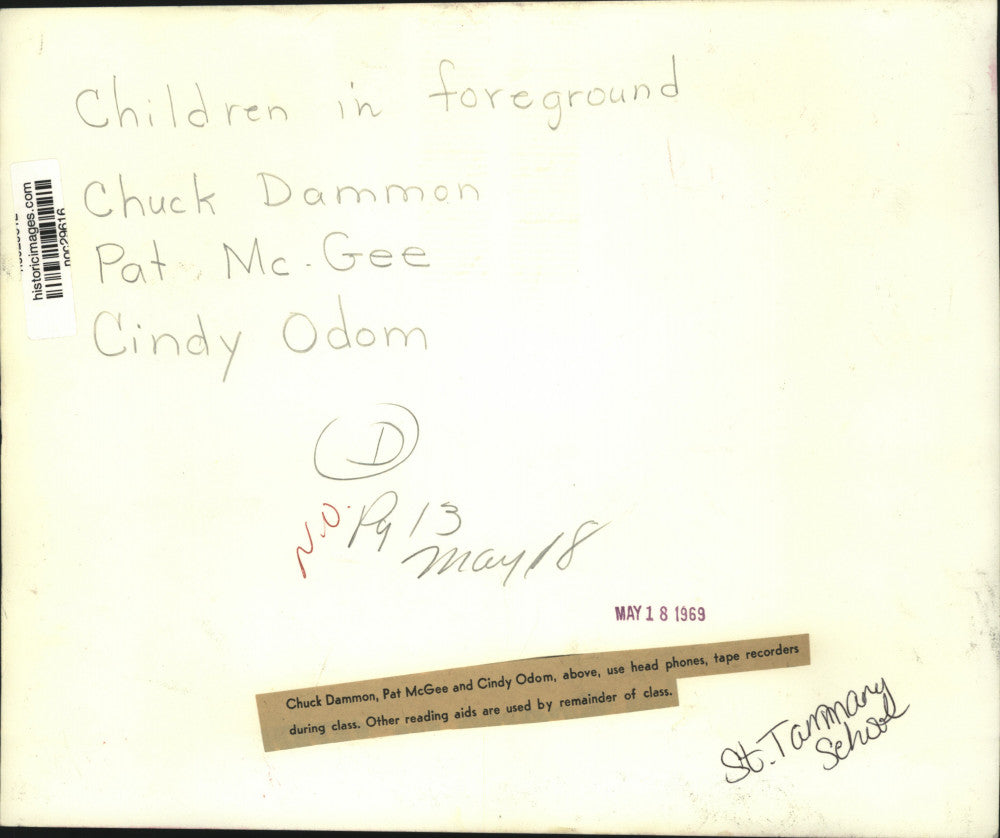 Children in foreground
Chuck Dammon
Pat Mc.Gee
Cindy Odom
historicimages.com
noc29616
D
N.O. Pg 13
May 18
MAY 18 1969
Chuck Dammon, Pat McGee and Cindy Odom, above, use head phones, tape recorders
during class. Other reading aids are used by remainder of class.
St. Tammany
School